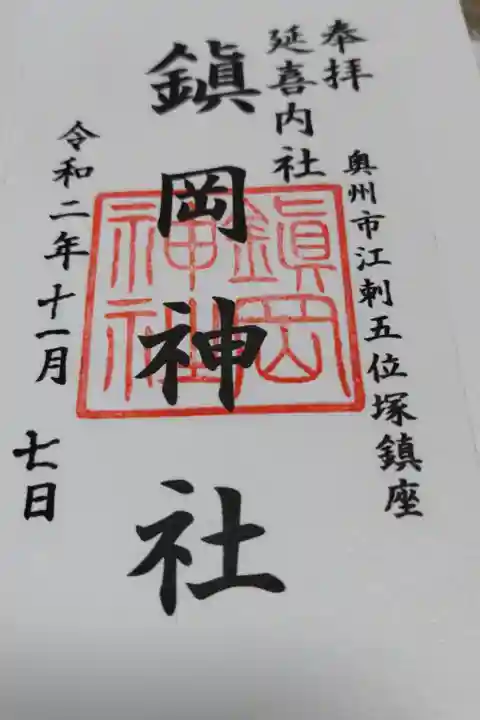 奉拝
奥州市江刺五位塚鎮座
延喜内社
鎭岡神社
鎭岡
神社
令和二年十一月
七日